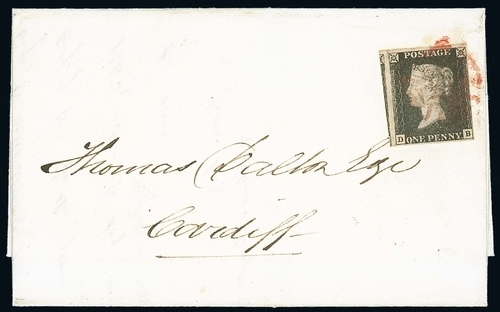 POSTAGE
D B
ONE PENNY
Thomas Dalton Esqe
Cardiff